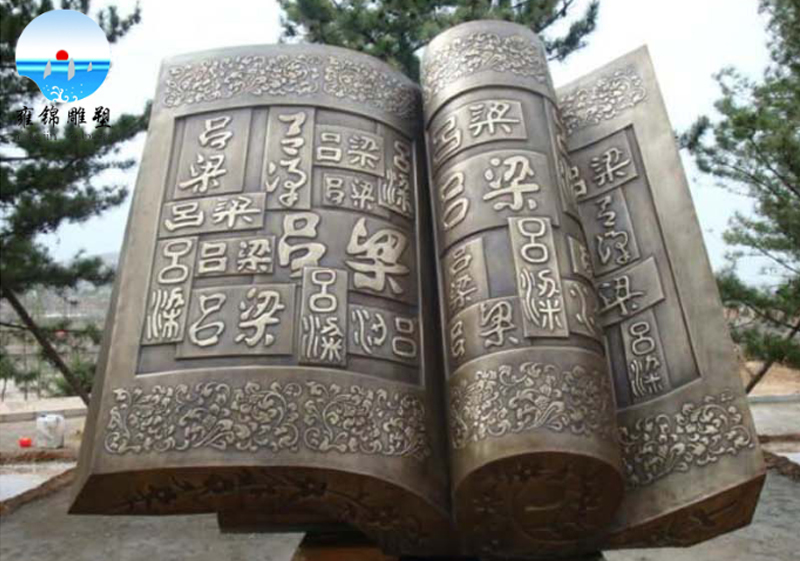 雍锦雕塑
吕梁
吕梁
吕梁
吕梁
吕梁
吕梁
吕梁
吕梁
吕梁
吕梁
吕梁
梁吕
吕梁
吕梁
吕梁
吕梁
梁
吕梁
吕梁
梁
吕梁